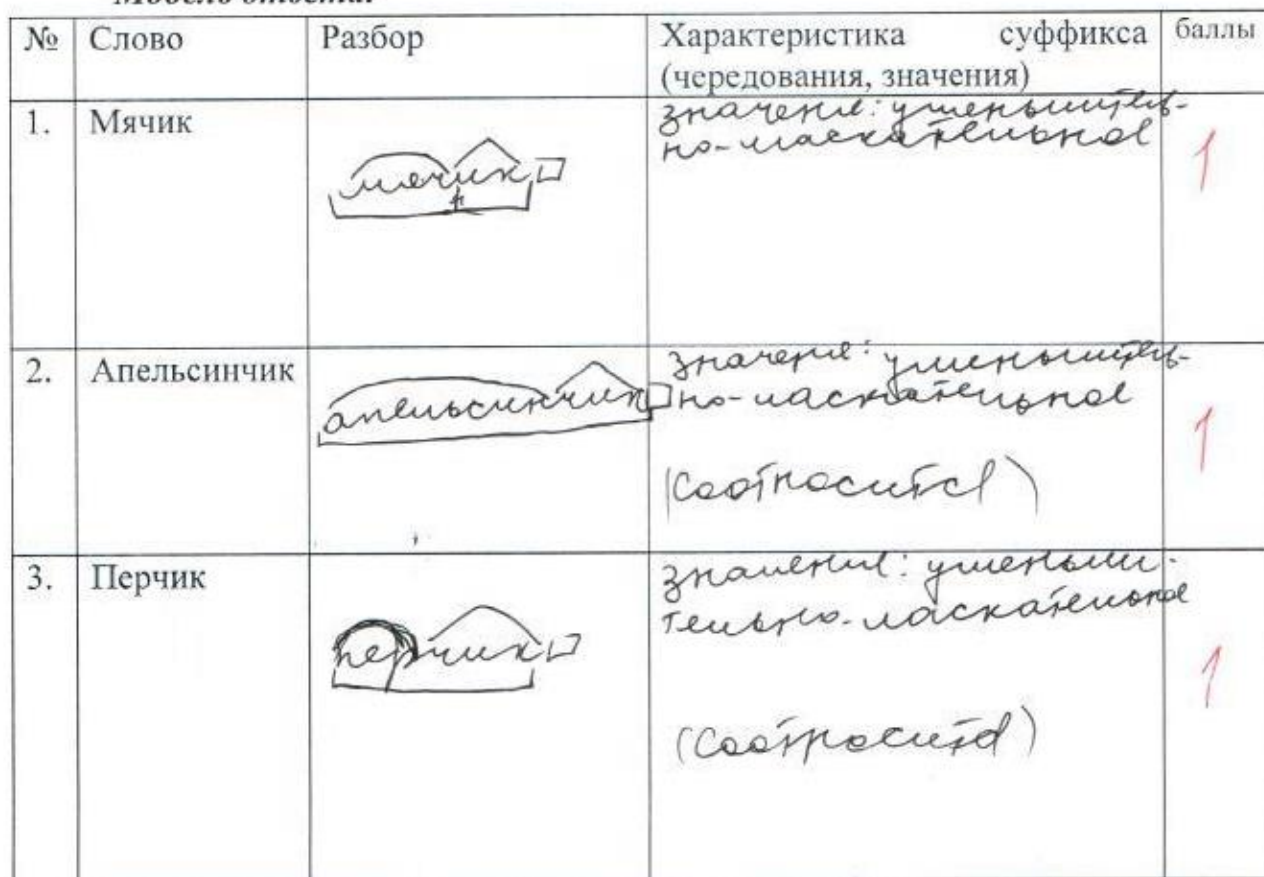 Модель ответа:
№ Слово Разбор Характеристика суффикса (чередования, значения) баллы
1. Мячик
мячик
значение: уменьшитель-
но-ласкательное
1
2. Апельсинчик
апельсинчик
значение: уменьшитель-
но-ласкательное
(соотносится)
1
3. Перчик
перчик
значение: уменьши-
тельно-ласкательное
(соотносится)
1